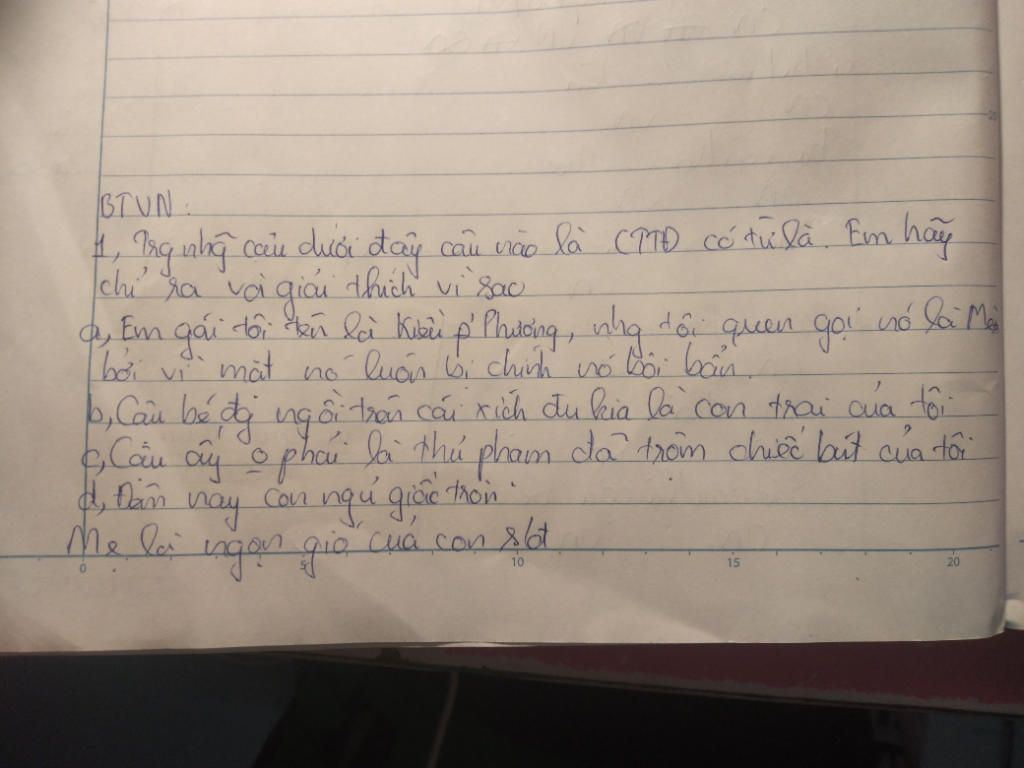 BTVN:
1, Trg nhg~ câu dưới đây câu nào là CTTĐ có từ là. Em hãy
chỉ ra và giải thích vì sao
a, Em gái tôi tên là Kiều P' Phương, nhg tôi quen gọi nó là Mè
bởi vì mặt nó luôn bị chính nó bôi bẩn.
b, Cậu bé đg ngồi trên cái xích đu kia là con trai của tôi
c, Cậu ấy o phải là thủ phạm đã trộm chiếc bút của tôi
d, Đêm nay con ngủ giấc tròn
Mẹ là ngọn gió của con sđt
0 5 10 15 20